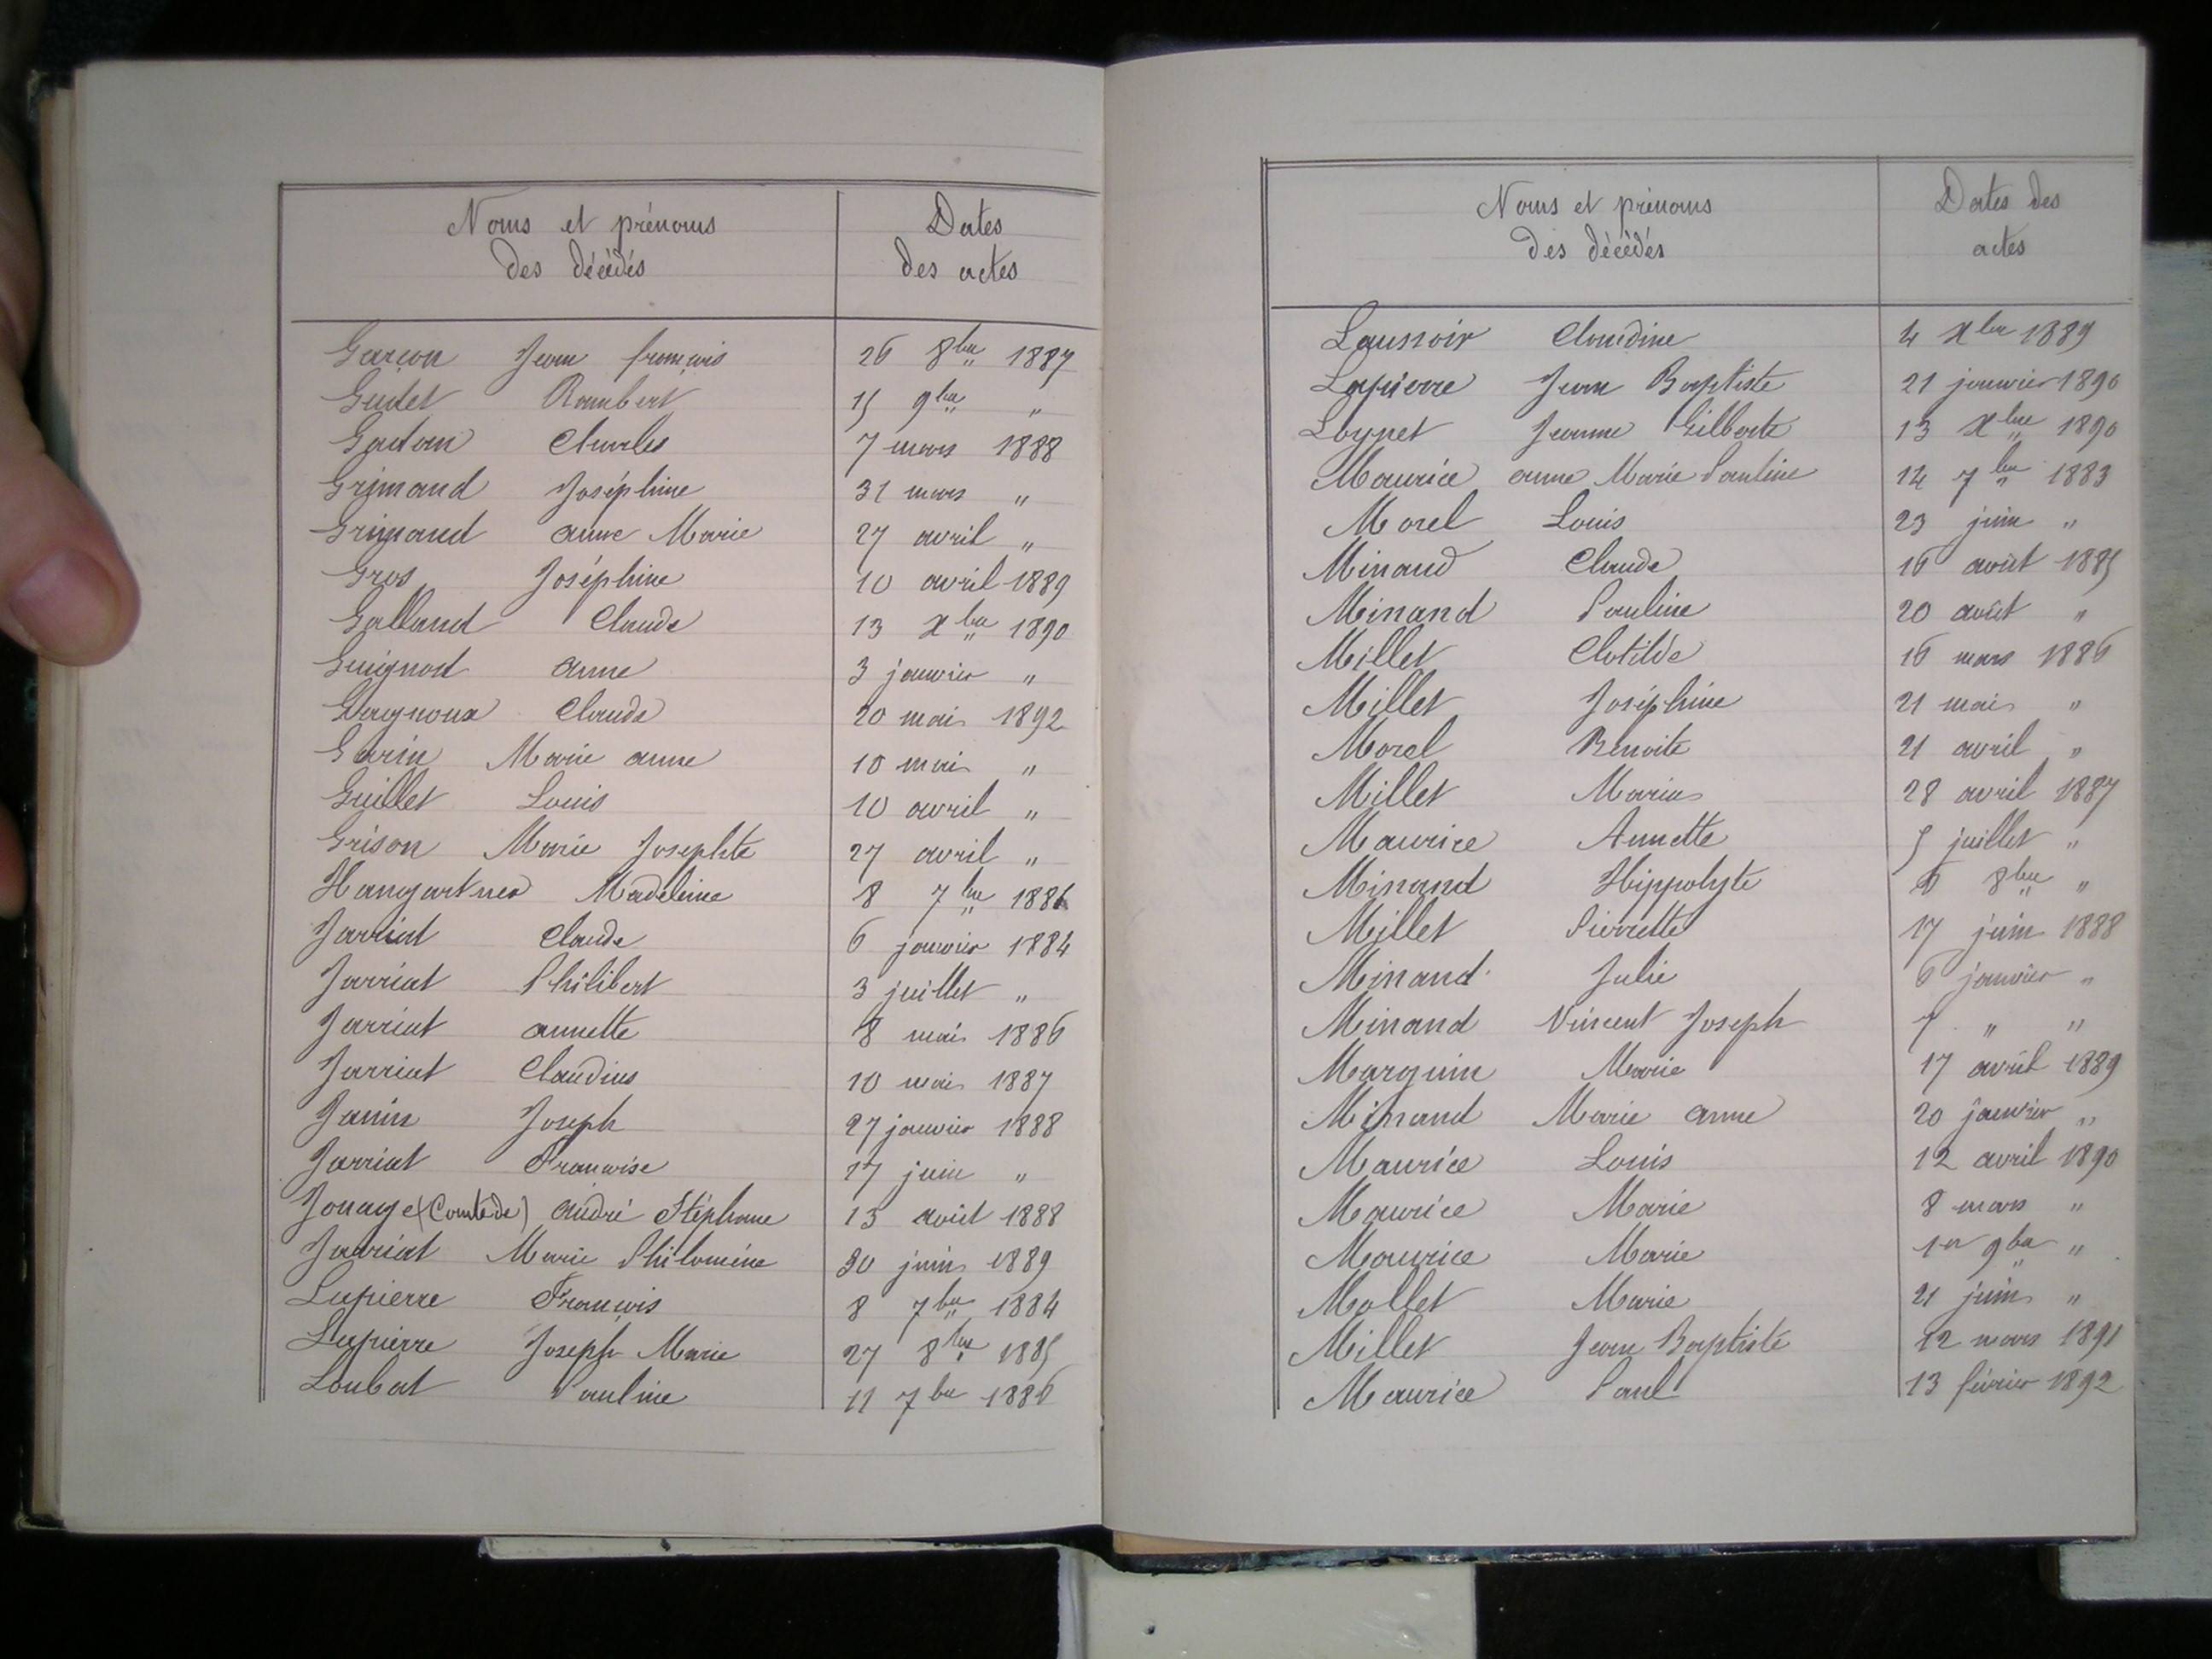 Noms et prénoms
des décédés
Dates
des actes
Garçon Jean françois 26 8bre 1887
Gudet Rambert 15 9bre "
Gactan Charles 7 mars 1888
Grimand Joséphine 31 mars "
Grimand anne Marie 27 avril "
Gros Joséphine 10 avril 1889
Galland Claude 13 Xbre 1890
Guignod anne 3 janvier "
Gagnoux Claude 20 mai 1892
Garin Marie anne 10 mai "
Guillet Louis 10 avril "
Grison Marie Josephte 27 avril "
Hangartner Madeleine 8 7bre 1886
Jarriat Claude 6 janvier 1884
Jarriat Philibert 3 juillet "
Jarriat annette 8 mai 1886
Jarriat Claudius 10 mai 1887
Janin Joseph 27 janvier 1888
Jarriat Françoise 17 juin "
Jonage (Comte de) andré Stéphane 13 août 1888
Jarriat Marie Philomène 30 juin 1889
Lapierre François 8 7bre 1884
Lapierre Joseph Marie 27 8bre 1885
Loubat Pauline 11 7bre 1886
Noms et prénoms
des décédés
Dates des
actes
Claudine 4 Xbre 1889
Lapierre Jean Baptiste 21 janvier 1890
Loynet Jeanne Gilberte 13 Xbre 1890
Maurice anne Marie Pauline 14 7bre 1883
Morel Louis 23 juin "
Minand Claude 16 août 1885
Minand Pauline 20 août "
Millet Clotilde 16 mars 1886
Millet Joséphine 21 mai "
Morel Benoite 21 avril "
Millet Marius 28 avril 1887
Maurice Annette 5 juillet "
Minand Hippolyte 6 8bre "
Millet Pierrette 17 juin 1888
Minand Julie 6 janvier "
Minand Vincent Joseph 7 " "
Marguin Marie 17 avril 1889
Minand Marie anne 20 janvier "
Maurice Louis 12 avril 1890
Maurice Marie 8 mars "
Maurice Marie 1er 9bre "
Mollet Marie 21 juin "
Millet Jean Baptiste 12 mars 1891
Maurice Paul 13 février 1892